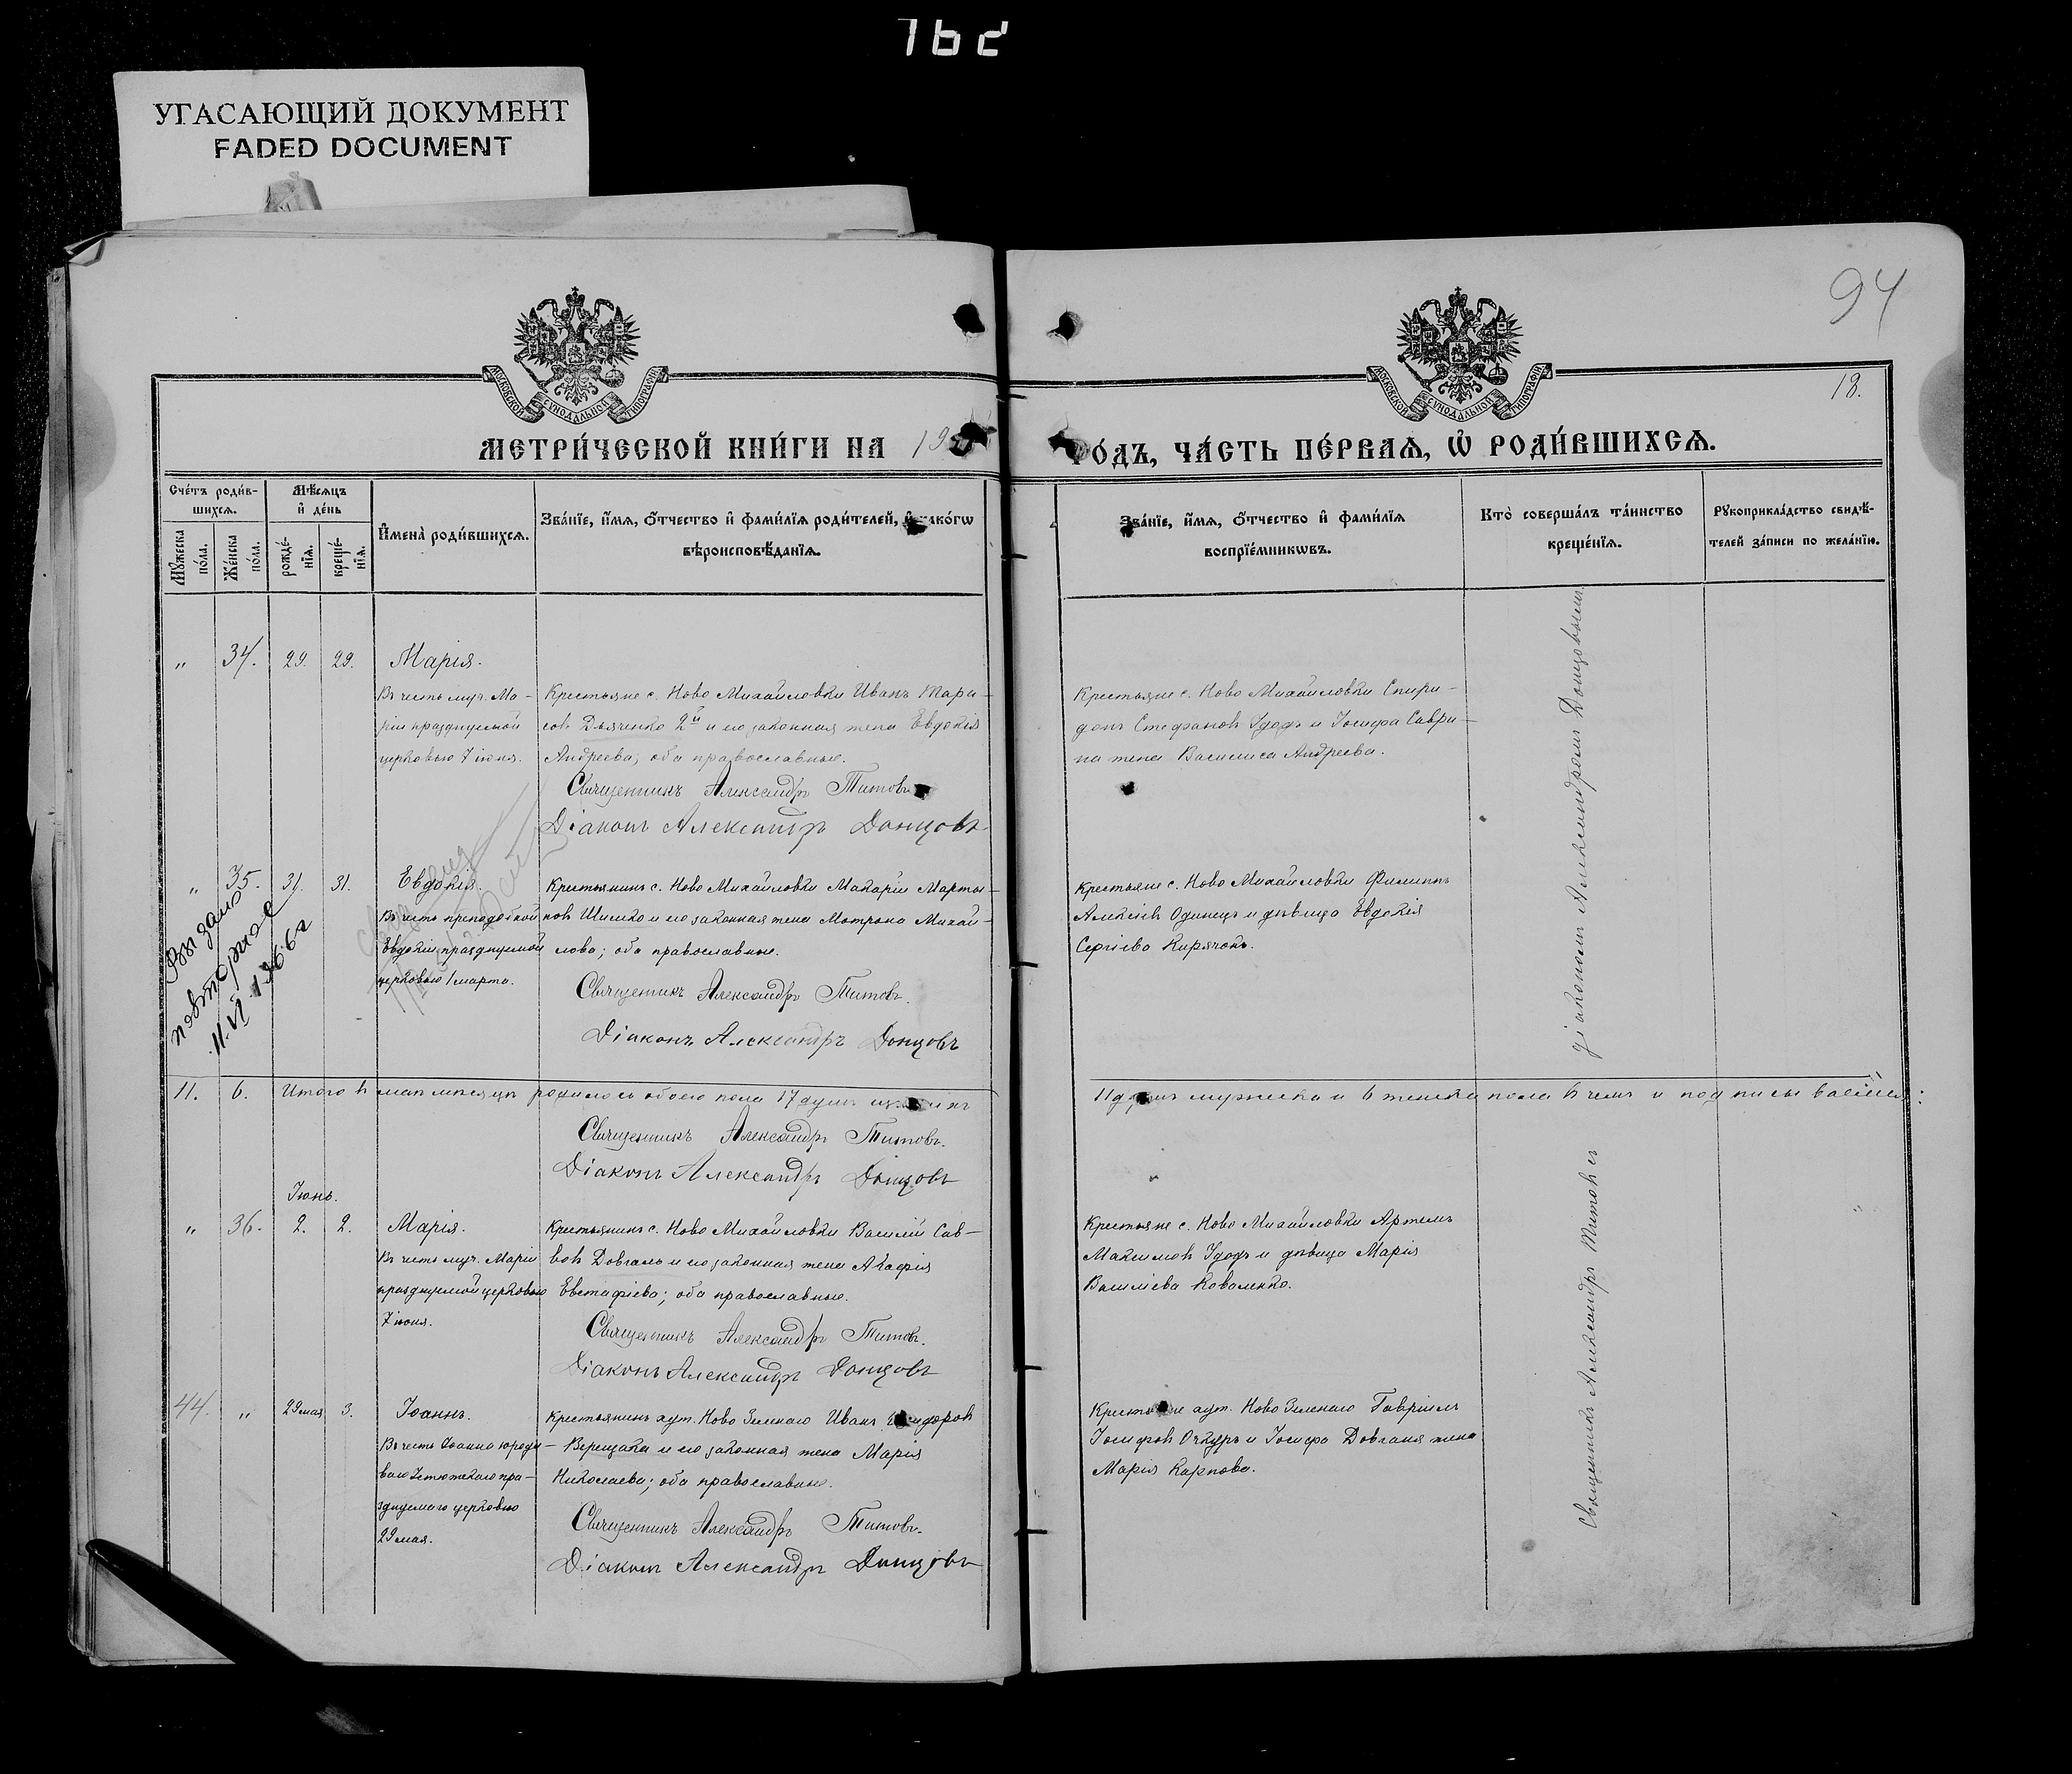 162
УГАСАЮЩИЙ ДОКУМЕНТ
FADED DOCUMENT
94
18.
МОСКОВСКОЙ СѴНОДАЛЬНОЙ ТИПОГРАФІИ
МОСКОВСКОЙ СѴНОДАЛЬНОЙ ТИПОГРАФІИ
МЕТРИ́ЧЕСКОЙ КНИ́ГИ НА 19
ГО́ДЪ, ЧА́СТЬ ПЕ́РВАѦ, Ѡ҆ РОДИ́ВШИХСѦ.
Сче́тъ роди́в-
шихсѧ.
Мѣ́сѧцъ
и҆ де́нь
Мꙋ́жеска по́ла.
Же́нска по́ла.
рожде́-нїѧ.
креще́-нїѧ.
И҆мена̀ роди́вшихсѧ.
Зва́нїе, и҆́мѧ, ѻ҆́тчество и҆ фами́лїѧ роди́телей, и҆ како́гѡ
вѣроисповѣ́данїѧ.
Зва́нїе, и҆́мѧ, ѻ҆́тчество и҆ фами́лїѧ
воспрїе́мникѡвъ.
Кто̀ соверша́лъ та́инство
креще́нїѧ.
Рꙋкоприкла́дство свидѣ́-
телей за́писи по жела́нїю.
„ 34. 29. 29. Марія.
Въ честь муч. Ма-
ріи празднуемой
церковью 7 іюня.
Крестьяне с. Ново Михайловки Иванъ Тара-
совъ Дьяченко 2й и его законная жена Евдокія
Андреева; оба православные.
Священникъ Александръ Титовъ
Діаконъ Александръ Донцовъ
Крестьяне с. Ново Михайловки Спири-
донъ Стефановъ Удодъ и Іосифа Саври-
на жена Василиса Андреева.
діакономъ Александромъ Донцовымъ
„ 35. 31. 31. Евдокія.
Въ честь преподобной
Евдокіи празднуемой
церковью 1 марта.
Крестьянинъ с. Ново Михайловки Макарій Марты-
новъ Шишко и его законная жена Матрона Михай-
лова; оба православные.
Священникъ Александръ Титовъ.
Діаконъ Александръ Донцовъ
Крестьяне с. Ново Михайловки Филиппъ
Алексѣевъ Одинецъ и дѣвица Евдокія
Сергіева Кирячокъ.
Выдано
повторное
11.VI.1966г
11. 6. Итого въ маѣ мѣсяцѣ родилось обоего пола 17 душъ изъ нихъ
11 душъ мужеска и 6 женска пола въ чемъ и подписываемся:
Священникъ Александръ Титовъ.
Діаконъ Александръ Донцовъ
Іюнь.
„ 36. 2. 2. Марія.
Въ честь муч. Маріи
празднуемой церковью
7 іюня.
Крестьянинъ с. Ново Михайловки Василій Сав-
вовъ Довгаль и его законная жена Агафія
Евстафіева; оба православные.
Священникъ Александръ Титовъ.
Діаконъ Александръ Донцовъ
Крестьяне с. Ново Михайловки Артемъ
Максимовъ Удодъ и дѣвица Марія
Василіева Коваленко.
Священникъ Александръ Титовъ съ
44. „ 29 мая 3. Іоаннъ.
Въ честь Іоанна юроди-
ваго Устюжскаго пра-
зднуемаго церковью
29 мая.
Крестьянинъ хут. Ново Зеленаго Иванъ Исидоровъ
Верещака и его законная жена Марія
Николаева; оба православные.
Священникъ Александръ Титовъ.
Діаконъ Александръ Донцовъ
Крестьяне хут. Ново Зеленаго Гавріилъ
Іосифовъ Очкуръ и Іосифа Довганя жена
Марія Карпова.